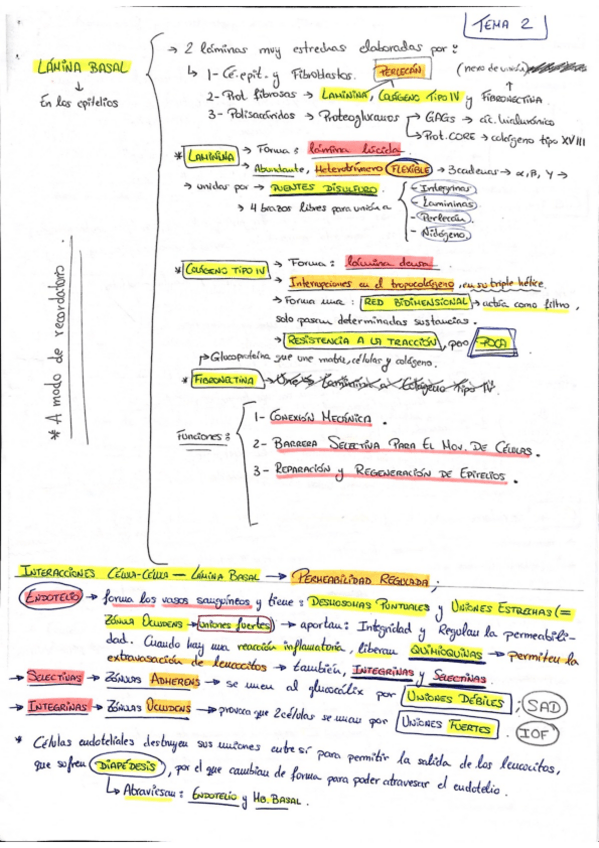 TEMA 2
LÁMINA BASAL
↓
En los epitelios
* A modo de recordatorio.
→ 2 láminas muy estrechas elaboradas por:
↳ 1- Cé. epit. y Fibroblastos. PERLECÁN (nexo de unión)
2- Prot. fibrosas → LAMININA, COLÁGENO TIPO IV y FIBRONECTINA
3- Polisacáridos → Proteoglucanos → GAGs → ác. hialurónico
→ Prot. CORE → colágeno tipo XVIII
* LAMININA → Forma: lámina lúcida.
→ Abundante, Heterotrímero FLEXIBLE → 3 cadenas → α, β, γ →
→ unidas por → PUENTES DISULFURO
→ 4 brazos libres para unión a
- Integrinas
- Lamininas
- Perlecán.
- Nidógeno.
* COLÁGENO TIPO IV → Forma: lámina densa.
→ Interrupciones en el tropocolágeno, en su triple hélice.
→ Forma una: RED BIDIMENSIONAL → actúa como filtro,
solo pasan determinadas sustancias.
→ RESISTENCIA A LA TRACCIÓN, pero POCA
→ Glucoproteína que une matriz, células y colágeno.
* FIBRONECTINA → Une a Laminina a Colágeno Tipo IV.
Funciones:
1- CONEXIÓN MECÁNICA.
2- BARRERA SELECTIVA PARA EL MOV. DE CÉLULAS.
3- REPARACIÓN y REGENERACIÓN DE EPITELIOS.
INTERACCIONES CÉLULA-CÉLULA — LÁMINA BASAL → PERMEABILIDAD REGULADA;
ENDOTELIO → forma los vasos sanguíneos y tiene: DESMOSOMAS PUNTUALES y UNIONES ESTRECHAS (=
ZÓNULA OCLUDENS → uniones fuertes) → aportan: Integridad y Regulan la permeabili-
dad. Cuando hay una reacción inflamatoria, liberan QUIMIOQUINAS → permiten la
extravasación de leucocitos → también, INTEGRINAS y SELECTINAS.
→ SELECTINAS → ZÓNULAS ADHERENS → se unen al glucocálix por UNIONES DÉBILES. SAD
→ INTEGRINAS → ZÓNULAS OCLUDENS → provoca que 2 células se unan por UNIONES FUERTES. IOF
* Células endoteliales destruyen sus uniones entre sí para permitir la salida de los leucocitos,
que sufren DIAPÉDESIS, por el que cambian de forma para poder atravesar el endotelio.
↳ Atraviesan: ENDOTELIO y MB. BASAL.